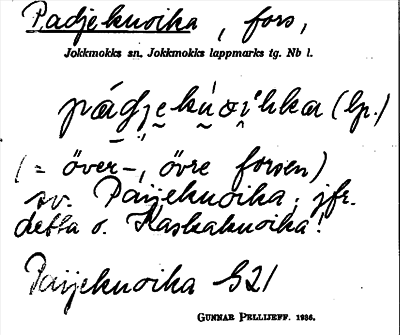 Padjekuoika, fors,
Jokkmokks sn. Jokkmokks lappmarks tg. Nb l.
pádjekúoihka (lp.)
(= över-, övre forsen)
sv. Paijekuoika; jfr.
detta o. Kaskakuoika!
Paijekuoika S21
GUNNAR PELLIJEFF. 1936.